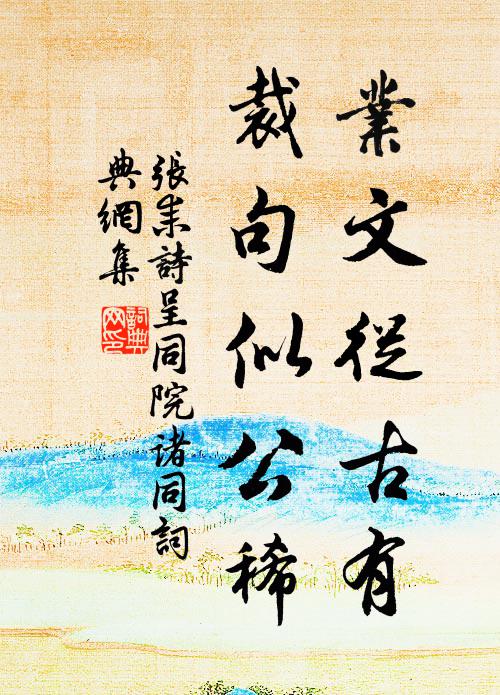 業文從古有
裁句似公稀
張耒詩呈同院諸同詞
典網集
詞典
网印